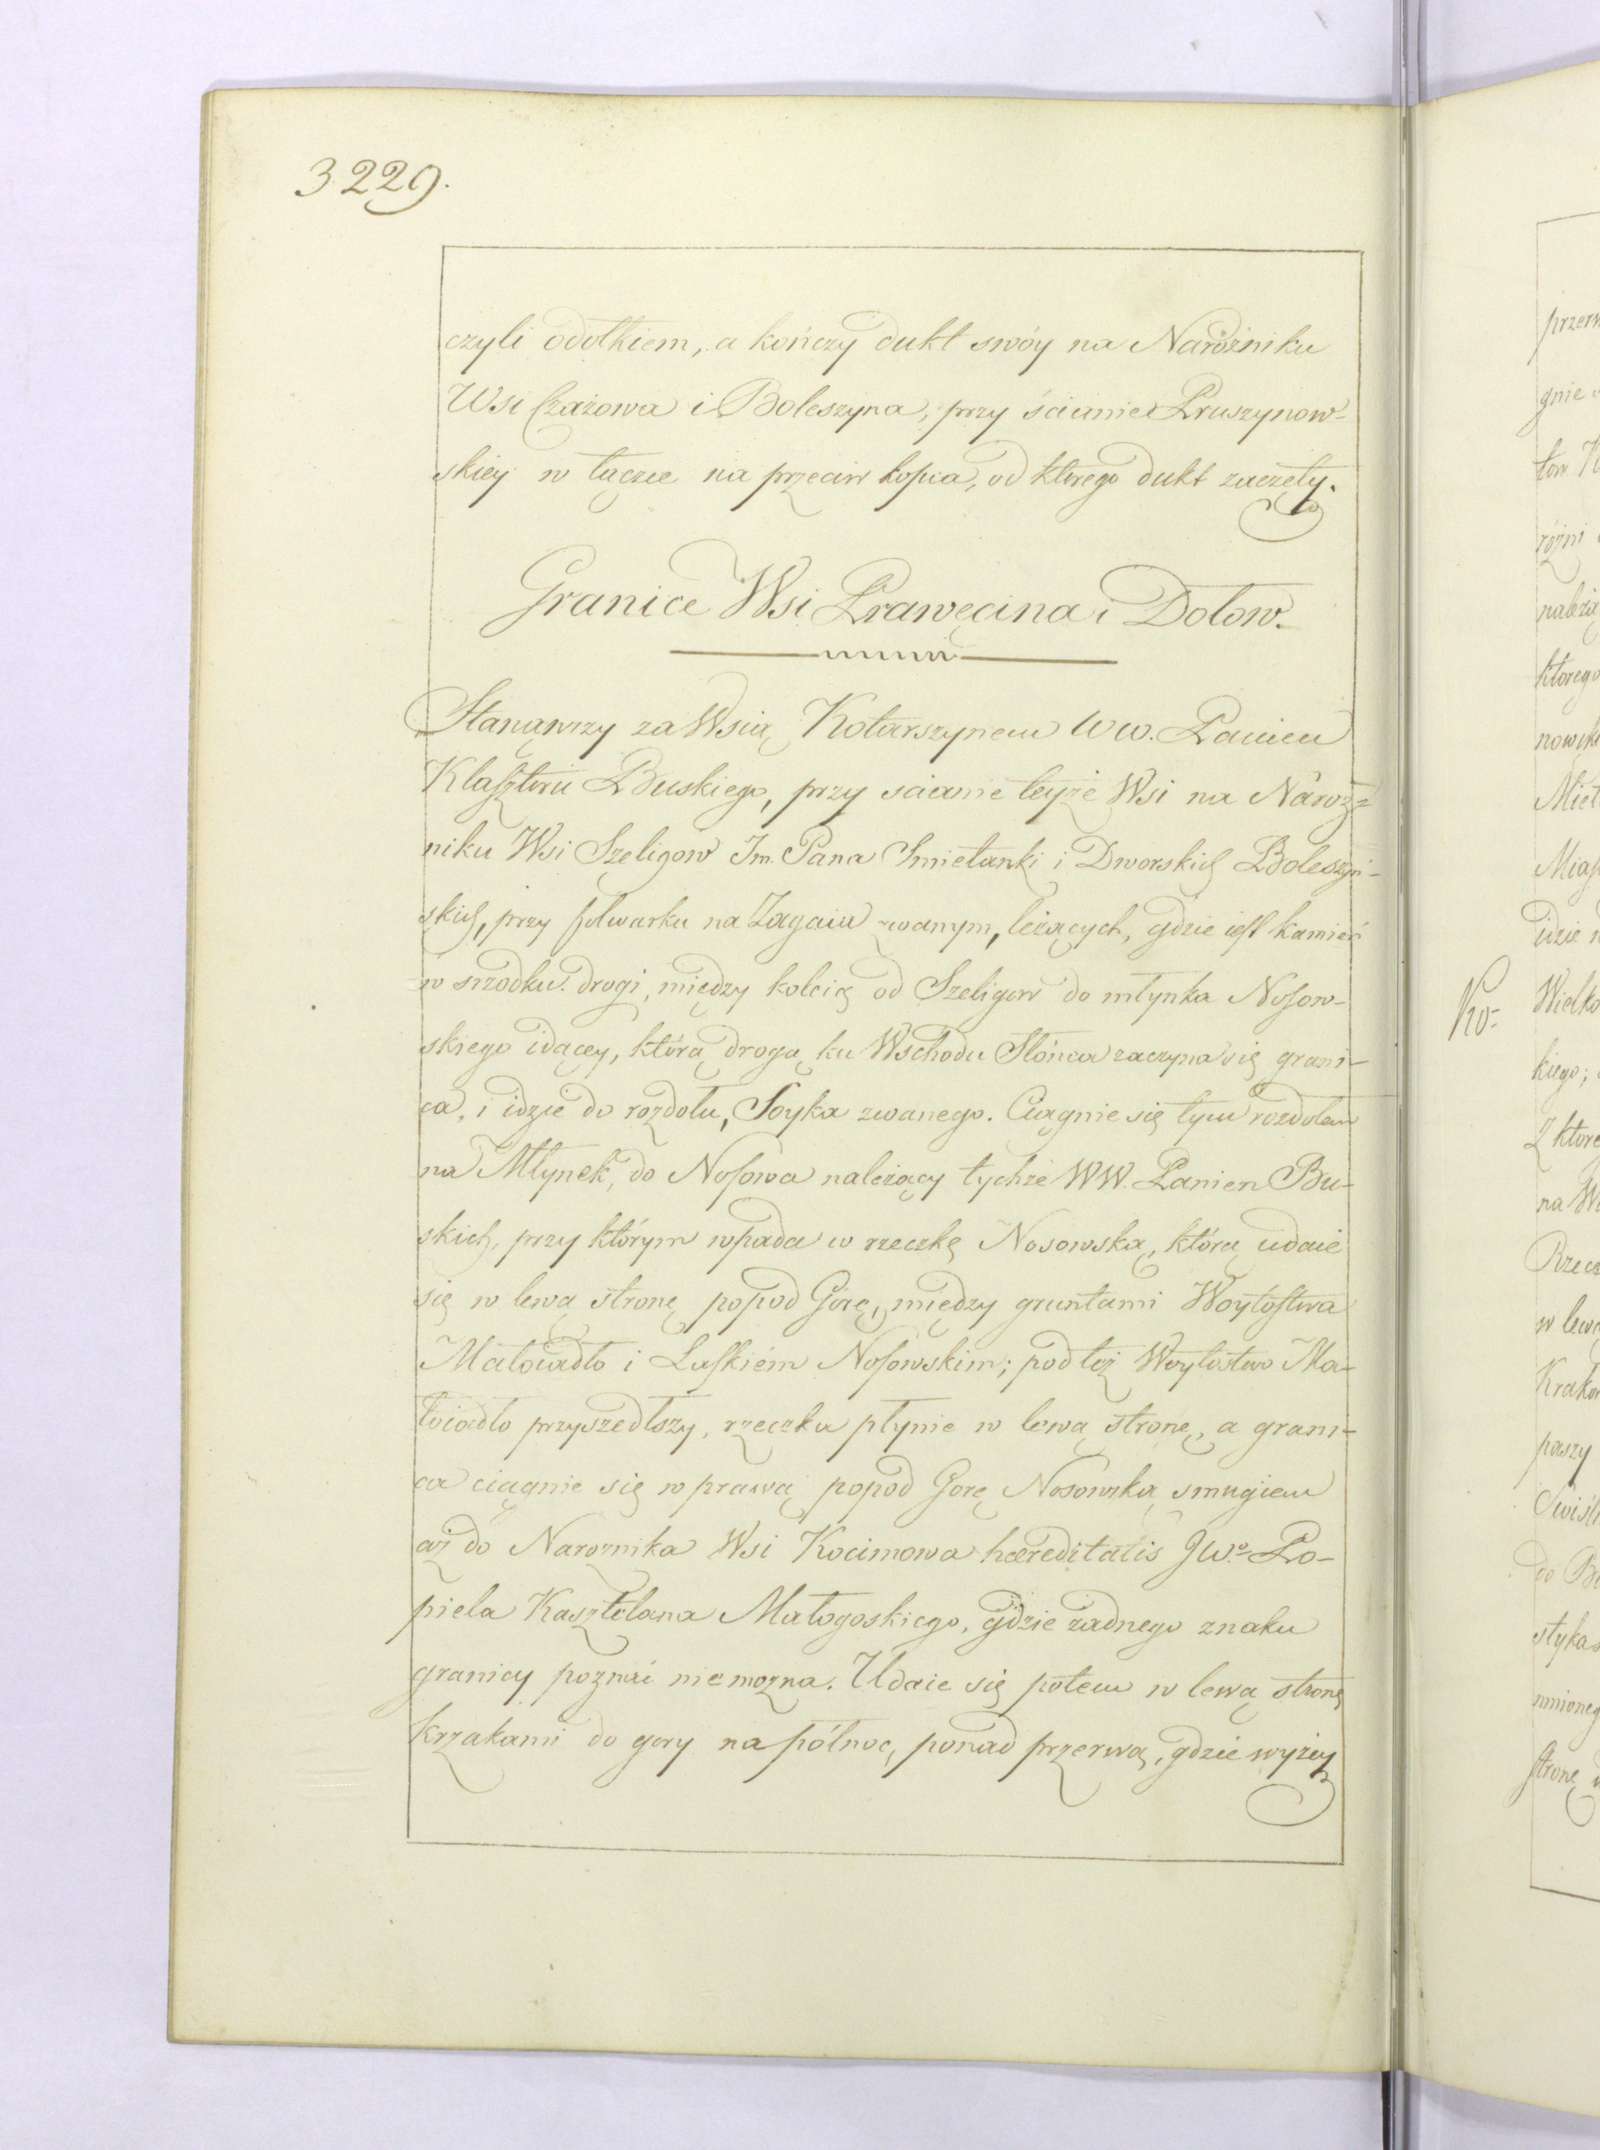 3229.
czyli odołkiem, a kończy dukt swóy na Narożniku
Wsi Czażowa i Boleszyna, przy ścianie Pruszynow-
skiey w łączce na przeciw kopca, od ktorego dukt zaczęty.
Granice Wsi Prawęcina i Dołow.
Stanąwszy za Wsią Kotarszynem WW. Panien
Klasztoru Buskiego, przy scianie teyże Wsi na Naroż-
niku Wsi Szeligow Im. Pana Smietanki i Dworskich Boleszyń-
skich, przy folwarku na Zagaiu zwanym, leżących, gdzie iest kamień
w srzodku drogi, między koleią od Szeligow do młynka Nosow-
skiego idącey, którą drogą ku Wschodu Słońca zaczyna się grani-
ca, i idzie do rozdołu, Soyka zwanego. Ciągnie się tym rozdołem
na Młynek, do Nosowa należący tychże WW. Panien Bu-
skich, przy którym wpada w rzeczkę Nosowską, którą udaie
się w lewą stronę popod Górę, między gruntami Woytostwa
Małoiadło i Laskiém Nosowskim; pod toż Woytostwo Ma-
łoiadło przyszedłszy, rzeczka płynie w lewą stronę, a grani-
ca ciągnie się w prawą popod Gorę Nosowską smugiem
aż do Naroznika Wsi Kocimowa haereditatis JWo. Po-
piela Kasztelana Małogoskiego, gdzie żadnego znaku
granicy poznać niemozna. Udaie się potem w lewą stronę
krzakami do gory na północ, ponad przerwą, gdzie wyżey
Ko-
przerw
gnie
tow K
rożni
należą
ktorego
nowski
Miet
Miast
idzie
Wielko
kiego;
Z ktore
na Ws
Rzecz
w lewą
Krakow
paszy
do Bo
styka
mnioneg
stronę